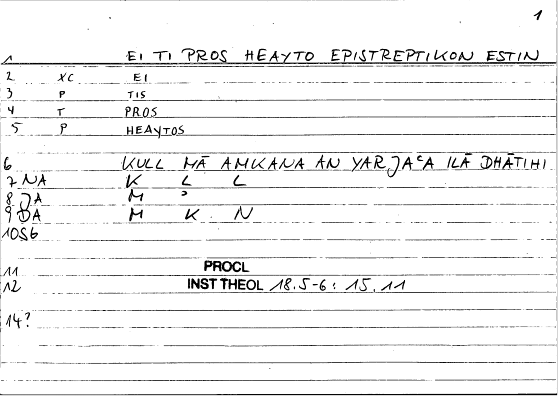 1
1 EI TI PROS HEAYTO EPISTREPTIKON ESTIN
2 XC EI
3 P TIS
4 T PROS
5 P HEAYTOS
6 KULL MĀ AMKANA AN YARJAʿA ILĀ DHĀTIHI
7 NA K L L
8 JA M ʾ
9 DA M K N
10 S6
11 PROCL
12 INST THEOL 18.5-6: 15.11
14?